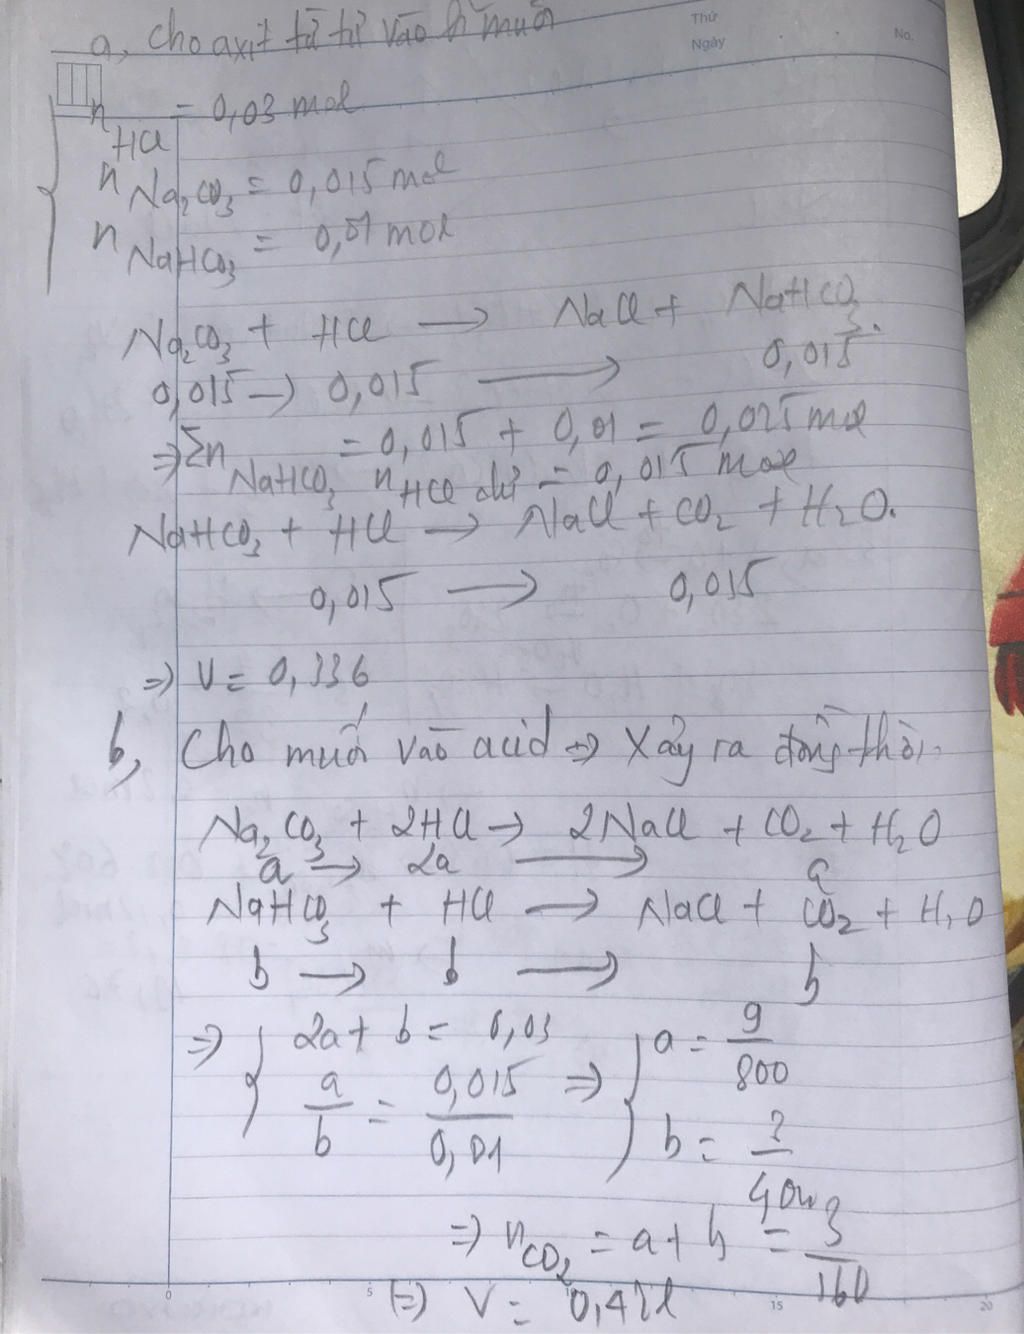 a, Cho axit từ từ vào muối
Thứ
Ngày
No.
n HCl = 0,03 mol
n Na₂CO₃ = 0,015 mol
n NaHCO₃ = 0,01 mol
Na₂CO₃ + HCl → NaCl + NaHCO₃.
0,015 → 0,015 → 0,015
⇒ Σn NaHCO₃ = 0,015 + 0,01 = 0,025 mol
n HCl dư = 0,015 mol
NaHCO₃ + HCl → NaCl + CO₂ + H₂O.
0,015 → 0,015
⇒ V = 0,336
b, Cho muối vào acid ⇒ Xảy ra đồng thời.
Na₂CO₃ + 2HCl → 2NaCl + CO₂ + H₂O
a → 2a → a
NaHCO₃ + HCl → NaCl + CO₂ + H₂O
b → b → b
⇒ { 2a + b = 0,03
a/b = 0,015/0,01 ⇒ { a = 9/800
b =
⇒ n CO₂ = a + b = 3/160
⇒ V = 0,42l
0 5 15 20